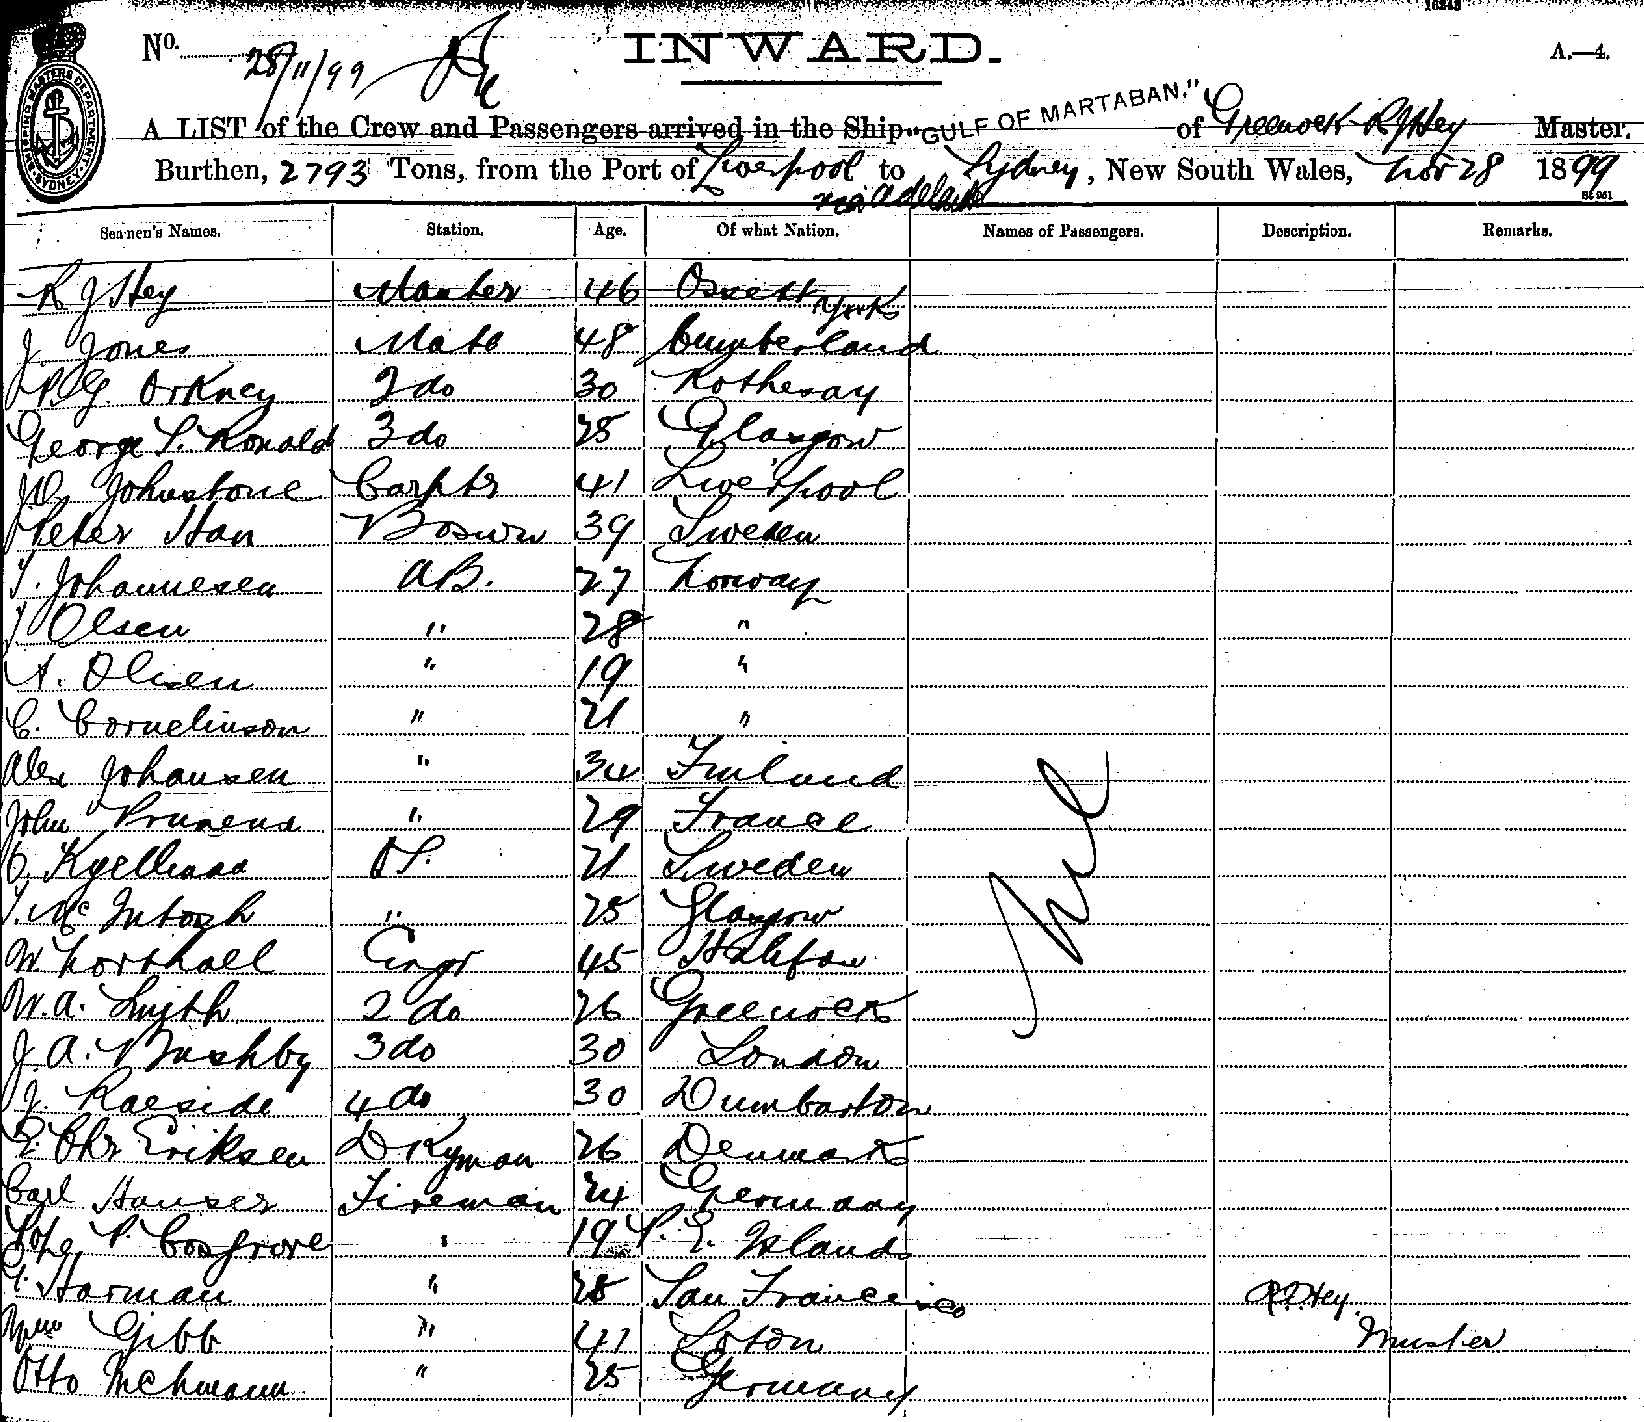 16243
No. 28/11/99
INWARD.
A.—4.
SHIPPING MASTERS DEPARTMENT SYDNEY
A LIST of the Crew and Passengers arrived in the Ship "GULF OF MARTABAN." of Greenock R J Hey Master.
Burthen, 2793 Tons, from the Port of Liverpool to Sydney, New South Wales, Nov 28 1899
via Adelaide
Seamen's Names. Station. Age. Of what Nation. Names of Passengers. Description. Remarks.
R J Hey Master 46 Ossett York
J. Jones Mate 48 Cumberland
P. G. Orkney 2 do 30 Rothesay
George S. Ronald 3 do 25 Glasgow
Johnstone Carptr 41 Liverpool
Peter Han Boswn 39 Sweden
T. Johannesen AB. 27 Norway
J Olsen " 28 "
A. Olsen " 19 "
C. Cornelinson " 21 "
Alex Johansen " 34 Finland
John " 29 France
O. OS. 21 Sweden
J. McIntosh " 25 Glasgow
W Northall Engr 45 Halifax
W. A. Smith 2 do 26 Greenock
J. A. Bushby 3 do 30 London
J. Raeside 4 do 30 Dumbarton
E. Chr Eriksen DKyman 26 Denmark
Carl Hauser Fireman 24 Germany
P. Cosgrove " 19 P. E. Island
T. Harman " 28 San Francisco
Wm Gibb " 41 Loton
Otto " 25 Germany
Nil
R J Hey.
Master